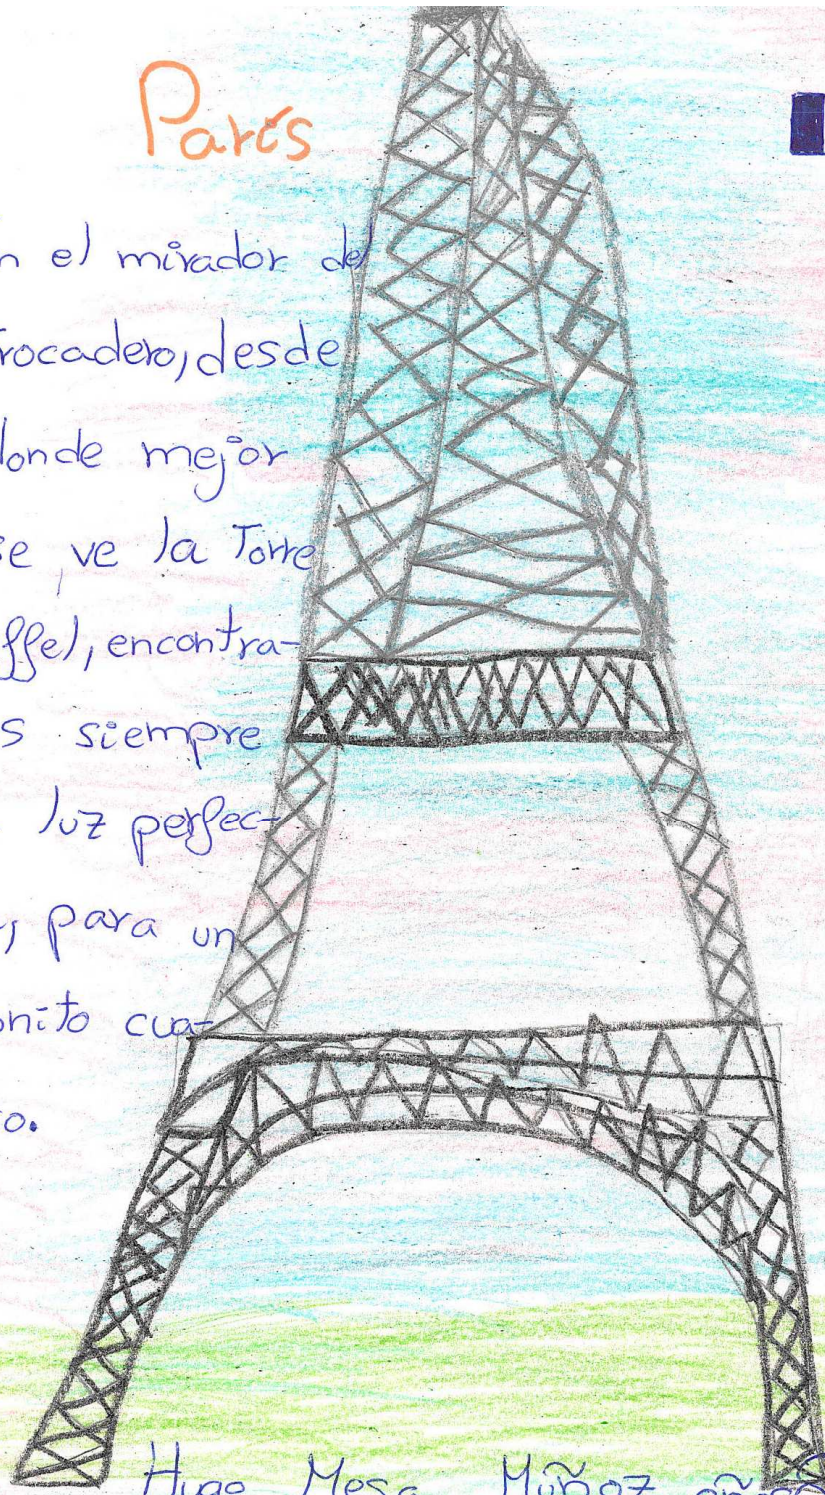 París
n el mirador del
rocadero, desde
donde mejor
se ve la Torre
iffel, encontra-
s siempre
luz perfec-
, para un
onito cua-
o.
Hugo Mesa Muñoz